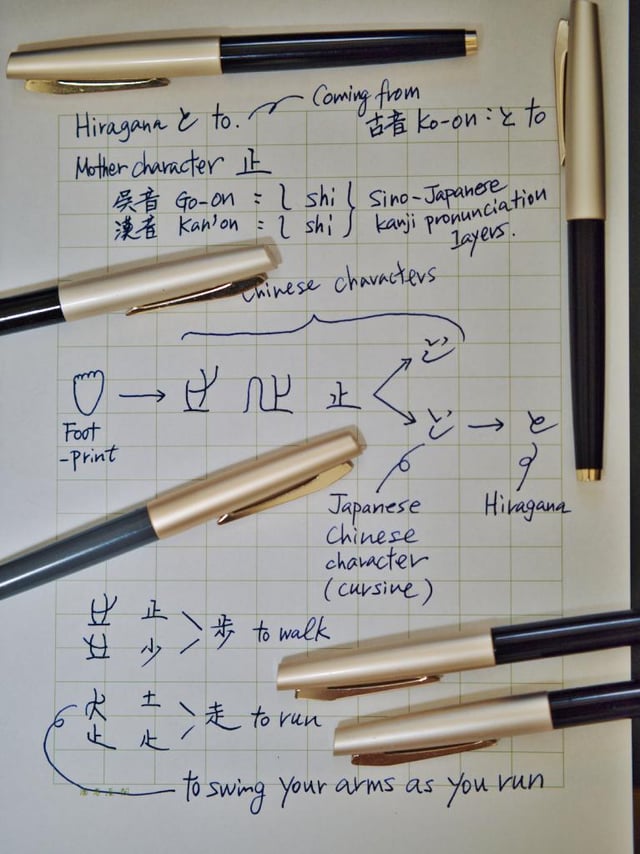 Hiragana と to.
Coming from
古音 Ko-on : と to
Mother character 止
呉音 Go-on : { shi } Sino-Japanese
漢音 Kan'on : { shi } kanji pronunciation
layers.
Chinese characters
止
と → と
Foot
-print
Japanese
Chinese
character
(cursine)
Hiragana
止
少 > 歩 to walk
土
止 > 走 to run
to swing your arms as you run